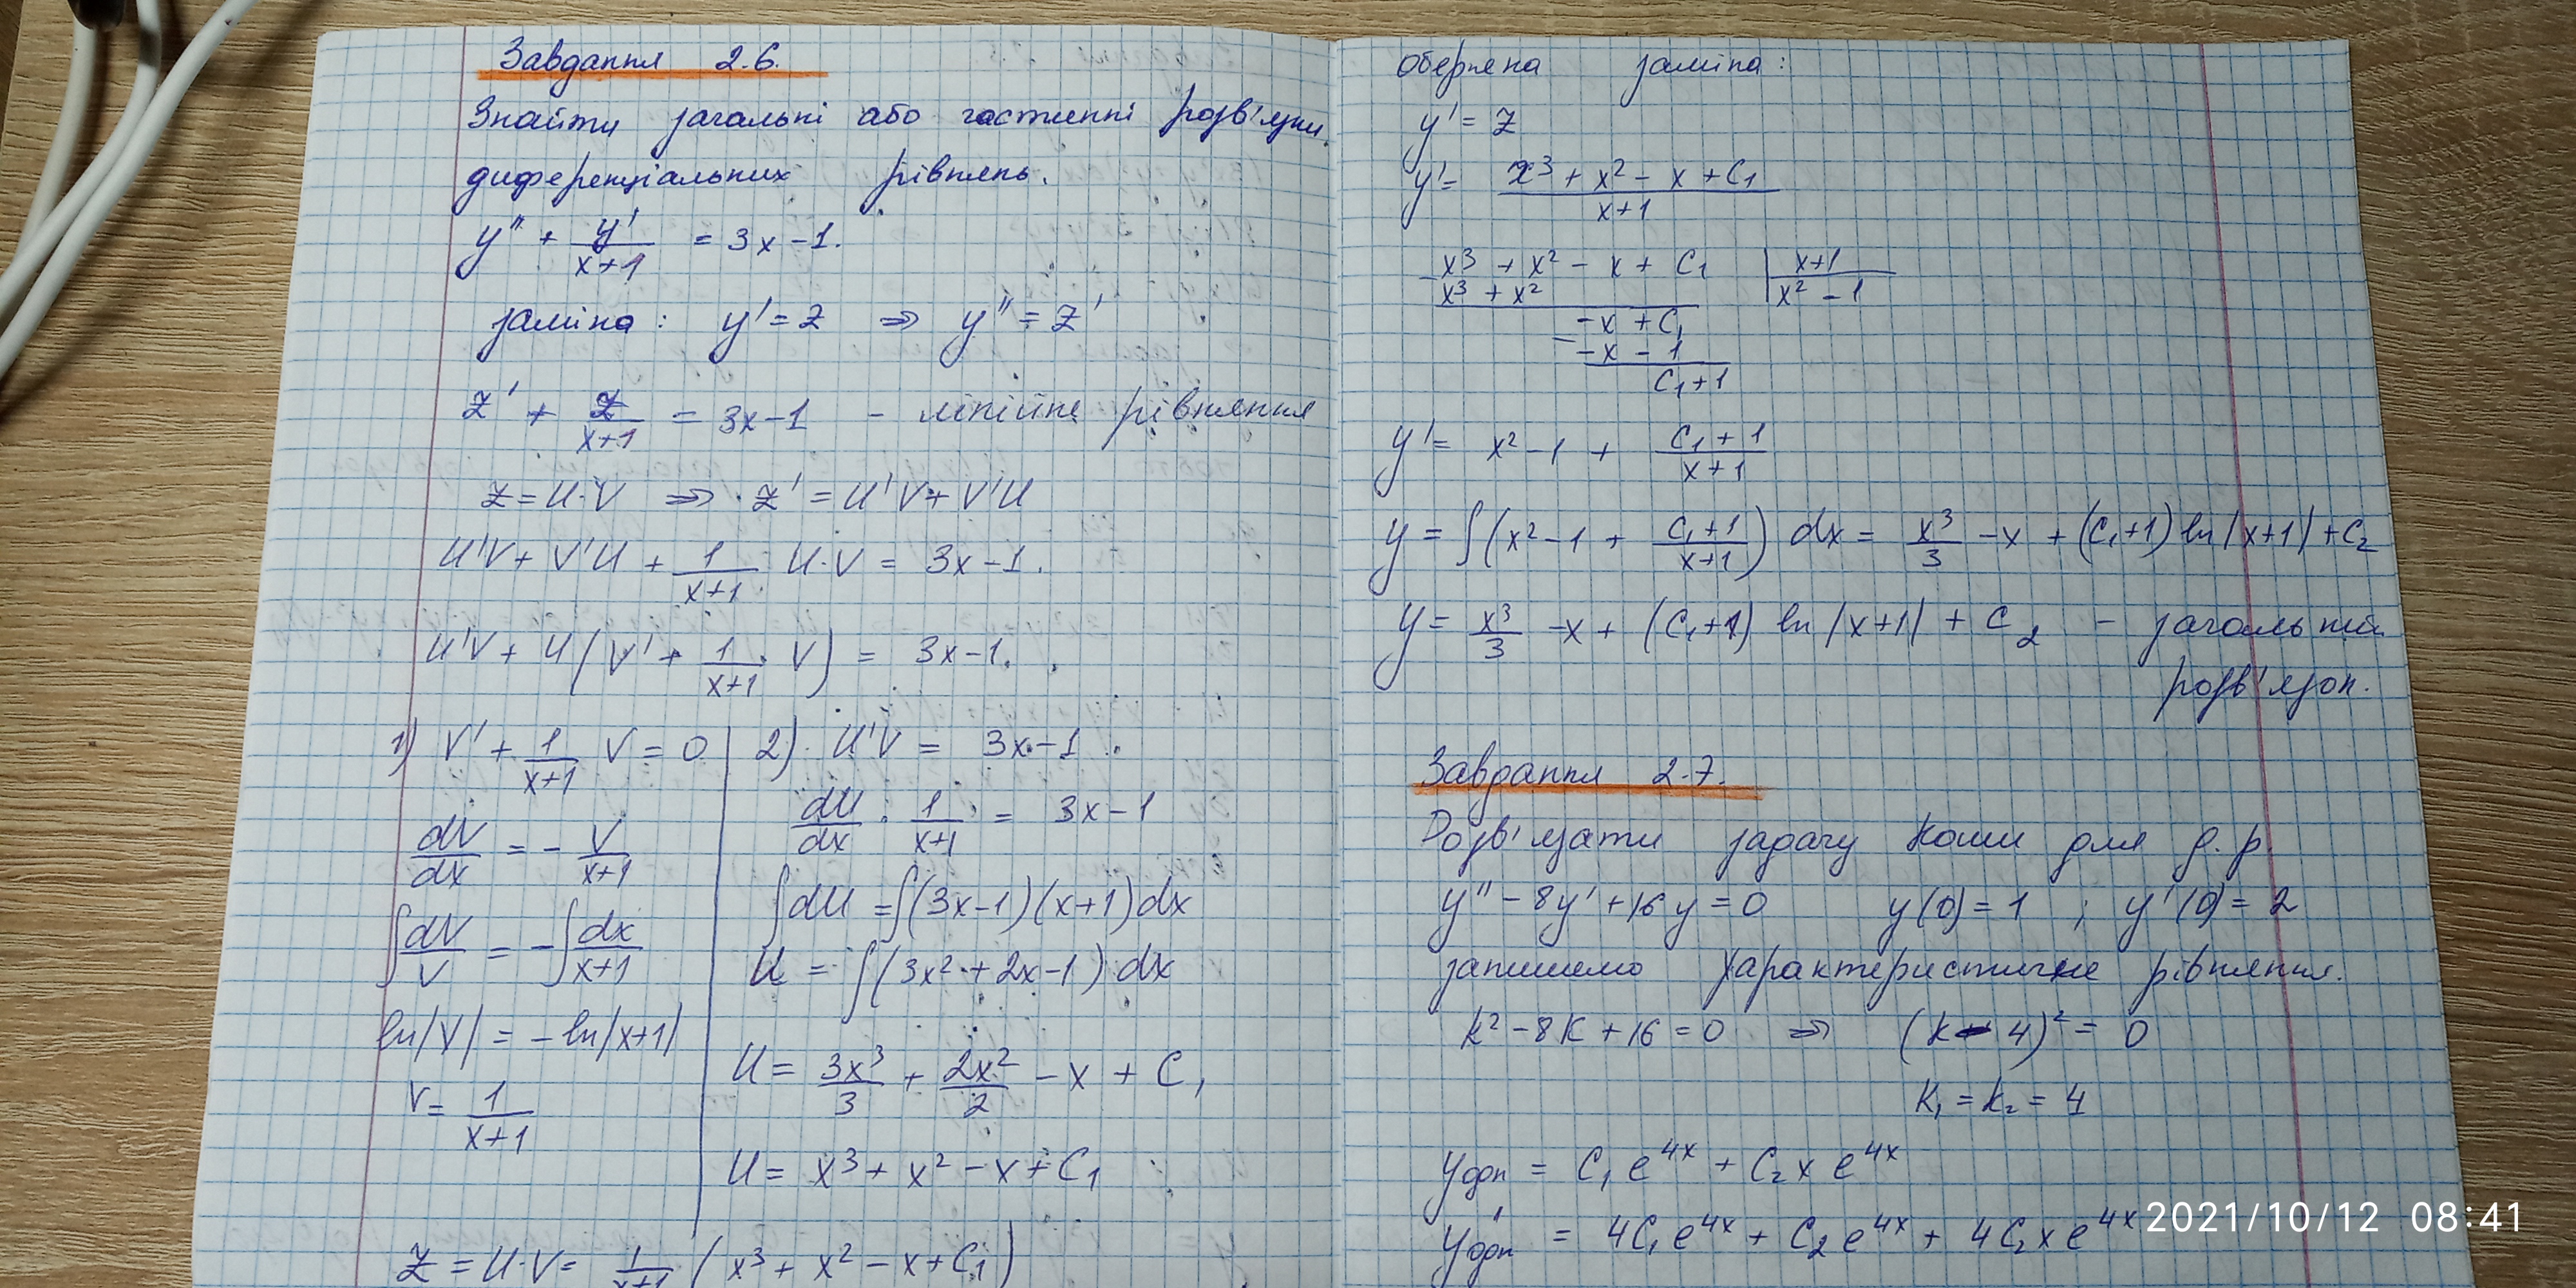 Завдання 2.6.
Знайти загальні або частинні розв'язки
диференціальних рівнянь.
y'' + y'/(x+1) = 3x-1.
заміна: y' = z ⇒ y'' = z'
z' + z/(x+1) = 3x-1 - лінійне рівняння
z = U·V ⇒ z' = U'V + V'U
U'V + V'U + 1/(x+1) U·V = 3x-1.
U'V + U(V' + 1/(x+1) · V) = 3x-1.
1) V' + 1/(x+1) V = 0
dV/dx = - V/(x+1)
∫dV/V = -∫dx/(x+1)
ln|V| = -ln|x+1|
V = 1/(x+1)
2) U'V = 3x-1
dU/dx · 1/(x+1) = 3x-1
∫dU = ∫(3x-1)(x+1)dx
U = ∫(3x²+2x-1)dx
U = 3x³/3 + 2x²/2 - x + C₁
U = x³ + x² - x + C₁
z = U·V = 1/(x+1) (x³ + x² - x + C₁)
обернена заміна:
y' = z
y' = (x³ + x² - x + C₁)/(x+1)
x³ + x² - x + C₁ | x+1
- x³ + x² | x² - 1
-x + C₁
- -x - 1
C₁+1
y' = x² - 1 + (C₁ + 1)/(x+1)
y = ∫(x² - 1 + (C₁+1)/(x+1)) dx = x³/3 - x + (C₁+1) ln|x+1| + C₂
y = x³/3 - x + (C₁+1) ln|x+1| + C₂ - загальний
розв'язок.
Завдання 2.7.
Розв'язати задачу Коши для д.р.
y'' - 8y' + 16y = 0 y(0) = 1 ; y'(0) = 2
запишемо характеристичне рівняння.
k² - 8k + 16 = 0 ⇒ (k - 4)² = 0
k₁ = k₂ = 4
yодн = C₁e⁴ˣ + C₂xe⁴ˣ
y'одн = 4C₁e⁴ˣ + C₂e⁴ˣ + 4C₂xe⁴ˣ
2021/10/12 08:41